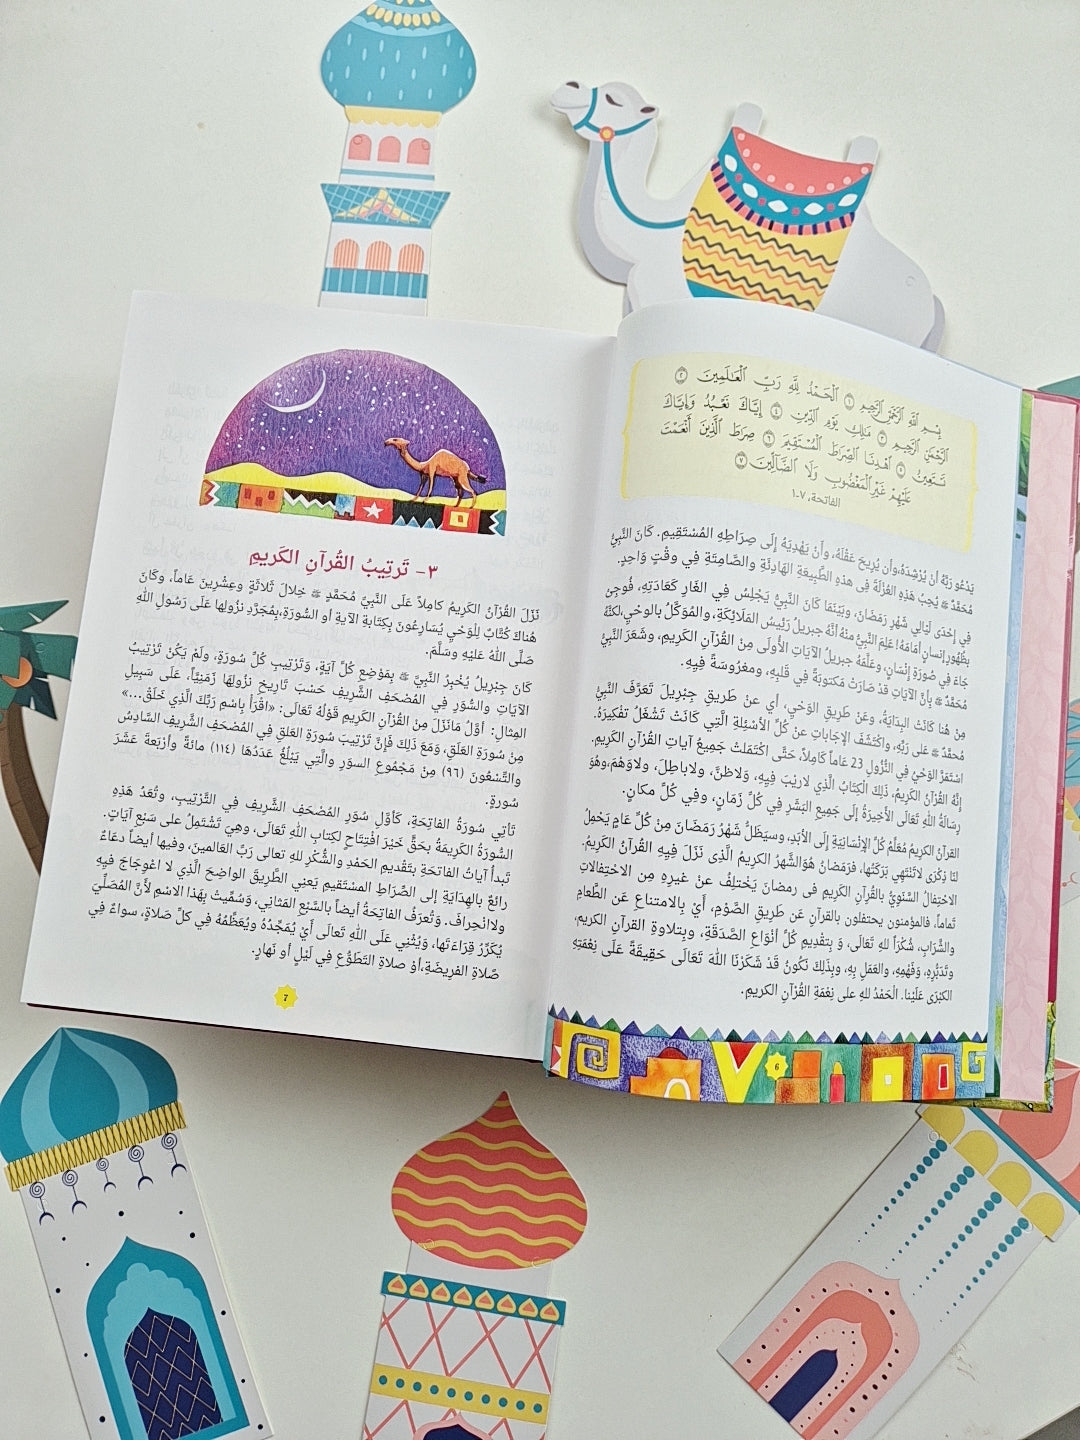 بِسْمِ اللَّهِ الرَّحْمَٰنِ الرَّحِيمِ ۝١ الْحَمْدُ لِلَّهِ رَبِّ الْعَالَمِينَ ۝٢
الرَّحْمَٰنِ الرَّحِيمِ ۝٣ مَالِكِ يَوْمِ الدِّينِ ۝٤ إِيَّاكَ نَعْبُدُ وَإِيَّاكَ
نَسْتَعِينُ ۝٥ اهْدِنَا الصِّرَاطَ الْمُسْتَقِيمَ ۝٦ صِرَاطَ الَّذِينَ أَنْعَمْتَ
عَلَيْهِمْ غَيْرِ الْمَغْضُوبِ وَلَا الضَّالِّينَ ۝٧
الفاتحة، ٧-١
يَدْعُو رَبَّهُ أَنْ يُرْشِدَهُ، وأن يُرِيحَ عَقْلَهُ، وأَنْ يَهْدِيَهُ إِلَى صِرَاطِهِ المُسْتَقِيمِ. كَانَ النَّبِيُّ
مُحَمَّدٌ ﷺ يُحِبُّ هَذِهِ العُزْلَةَ فِي هذهِ الطَّبِيعَةِ الهَادِئَةِ والصَّامِتَةِ فِي وقْتٍ وَاحِدٍ.
فِي إِحْدَى لَيَالِي شَهْرِ رَمَضَانَ، وبَيْنَمَا كَانَ النَّبِيُّ يَجْلِسُ فِي الغَارِ كَعَادَتِهِ، فُوجِئَ
بِظُهُورِ إنسانٍ أمَامَهُ! عَلِمَ النَّبِيُّ منهُ أنَّهُ جبريلُ رَئِيسُ المَلَائِكَةِ، والمُوَكَّلُ بالوحْيِ، لكنَّهُ
جَاءَ فِي صُورَةِ إِنْسَانٍ، وعَلَّمَهُ جبريلُ الآيَاتِ الأُولَى مِنْ القُرْآنِ الكَرِيمِ، وشَعَرَ النَّبِيُّ
مُحَمَّدٌ ﷺ بِأَنَّ الآيَاتِ قَدْ صَارَتْ مَكتوبَةً فِي قَلْبِهِ، ومغْرُوسَةً فِيهِ.
مِنْ هُنا كَانَتْ البِدَايَةُ، وعَنْ طَرِيقِ الوَحْيِ، أي عنْ طَرِيقِ جِبْرِيلَ تَعَرَّفَ النَّبِيُّ
مُحمَّدٌ ﷺ عَلَى رَبِّهِ، واكْتَشَفَ الإجَابَاتِ عنْ كُلِّ الأَسْئِلَةِ الَّتِي كَانَتْ تَشْغَلُ تفْكِيرَهُ.
اسْتَمَرَّ الوَحْيُ فِي النُّزُولِ 23 عَاماً كَامِلاً، حَتَّى اكْتَمَلَتْ جَمِيعُ آياتِ القُرْآنِ الكَرِيمِ.
إنَّهُ القُرْآنُ الكَرِيمُ، ذَلِكَ الْكِتَابُ الَّذِي لَارَيْبَ فِيهِ، وَلَاظنَّ، ولاباطِلَ، ولاوَهْمَ، وهُوَ
رِسَالَةُ اللهِ تَعَالَى الأَخِيرَةُ إلَى جَمِيعِ البَشَرِ فِي كُلِّ زَمَانٍ، وفِي كُلِّ مكانٍ.
القرآنُ الكَرِيمُ مُعَلِّمُ كُلِّ الإِنْسَانِيَّةِ إلَى الأَبَدِ، وسيَظَلُّ شَهْرُ رَمَضَانَ مِنْ كُلِّ عامٍ يَحْمِلُ
لنَا ذِكْرَى لاتَنْتَهِي بَرَكَتُهَا، فرَمَضَانُ هُوَالشَّهرُ الكريمُ الَّذِى نَزَلَ فِيهِ القُرآنُ الكَرِيمُ.
الاحْتِفَالُ السَّنَوِيُّ بِالقُرآنِ الكَرِيمِ فِى رمضانَ يَخْتلِفُ عنْ غيرِهِ مِن الاحْتِفَالَاتِ
تَماماً، فالمؤمنون يحتفلون بالقرآنِ عَن طَرِيقِ الصَّوْمِ، أيْ بِالامتناعِ عَن الطَّعامِ
والشَّرَابِ، شُكْرَاً للهِ تَعَالَى، وَ بِتقْدِيمِ كُلِّ أنْوَاعِ الصَّدَقَةِ، وبِتلاوةِ القرآنِ الكريمِ،
وتَدَبُّرِهِ، وَفَهْمِهِ، والعَمَلِ بِهِ، وبِذَلِكَ نَكُونُ قَدْ شَكَرْنَا اللهَ تَعَالَى حَقِيقَةً عَلَى نِعْمَتِهِ
الكبْرَى عَلَيْنا. الْحَمْدُ للهِ على نِعْمَةِ القُرْآنِ الكَرِيمِ.
6
٣- تَرتِيبُ القُرآنِ الكَريمِ
نَزَلَ القُرْآنُ الكَرِيمُ كامِلاً عَلَى النَّبِيِّ مُحَمَّدٍ ﷺ خِلالَ ثَلاثَةٍ وعِشْرِينَ عَاماً، وكَانَ
هُناكَ كُتَّابٌ لِلْوَحْيِ يُسَارِعُونَ بِكِتَابَةِ الآيَةِ أو السُّورَةِ،بِمُجَرَّدِ نزُولِها عَلَى رَسُولِ اللهِ
صَلَّى اللهُ عَلَيْهِ وسَلَّمَ.
كَانَ جِبْرِيلُ يُخْبِرُ النَّبِيَّ ﷺ بِمَوْضِعِ كُلِّ آيَةٍ، وَتَرْتِيبِ كُلِّ سُورَةٍ، ولَمْ يَكُنْ تَرْتِيبُ
الآيَاتِ والسُّوَرِ فِي المُصْحَفِ الشَّرِيفِ حَسَبَ تَارِيخِ نزُولِهَا زَمَنِيَّاً، عَلَى سَبِيلِ
المِثالِ: أوَّلُ مَانَزَلَ مِنْ القُرْآنِ الكَرِيمِ قَوْلُهُ تَعَالَى: «اقْرَأْ بِاسْمِ رَبِّكَ الَّذِي خَلَقَ...»
مِنْ سُورَةِ العَلَقِ، وَمَعَ ذَلِكَ فَإِنَّ تَرْتِيبَ سُورَةِ العَلَقِ فِي المُصْحَفِ الشَّرِيفِ السَّادِسُ
والتِّسْعُونَ (٩٦) مِنْ مَجْمُوعِ السوَرِ والَّتِي يَبْلُغُ عَدَدُهَا (١١٤) مائةً وأَرْبَعَةَ عَشَرَ
سُورةٍ.
تَأتِي سُورَةُ الفاتِحَةِ، كَأوَّلِ سُوَرِ المُصْحَفِ الشَّرِيفِ فِي التَّرْتِيبِ، وتُعَدُّ هَذِهِ
السُّورَةُ الكَرِيمَةُ بحَقٍّ خَيْرَ افْتِتَاحٍ لِكتابِ اللهِ تَعَالَى، وهِيَ تَشْتَمِلُ على سَبْعِ آيَاتٍ.
تَبدأُ آياتُ الفَاتحَةِ بِتَقْدِيمِ الحَمْدِ والشُّكْرِ للهِ تعالى رَبِّ العَالَمينَ، وفيها أيضاً دعَاءٌ
رائعٌ بالهِدَايَةِ إلَى الصِّرَاطِ المسْتَقِيمِ يَعنِي الطَّرِيقَ الواضِحَ الَّذِي لا اعْوِجَاجَ فيهِ
ولاانْحِرافَ. وتُعرَفُ الفاتِحَةُ أيضاً بالسَّبْعِ المَثاني، وَسُمِّيتْ بِهَذا الاسْمِ لأَنَّ المُصَلِّيَ
يُكَرِّرُ قِرَاءَتَها، وَيُثْنِي عَلَى اللهِ تَعَالَى أيْ يُمَجِّدُهُ ويُعَظِّمُهُ فِي كلِّ صَلاةٍ، سواءٌ فِي
صَلاةِ الفرِيضَةِ،أوْ صلاةِ التَطَوُّعِ فِي لَيْلٍ أو نَهارٍ.
7